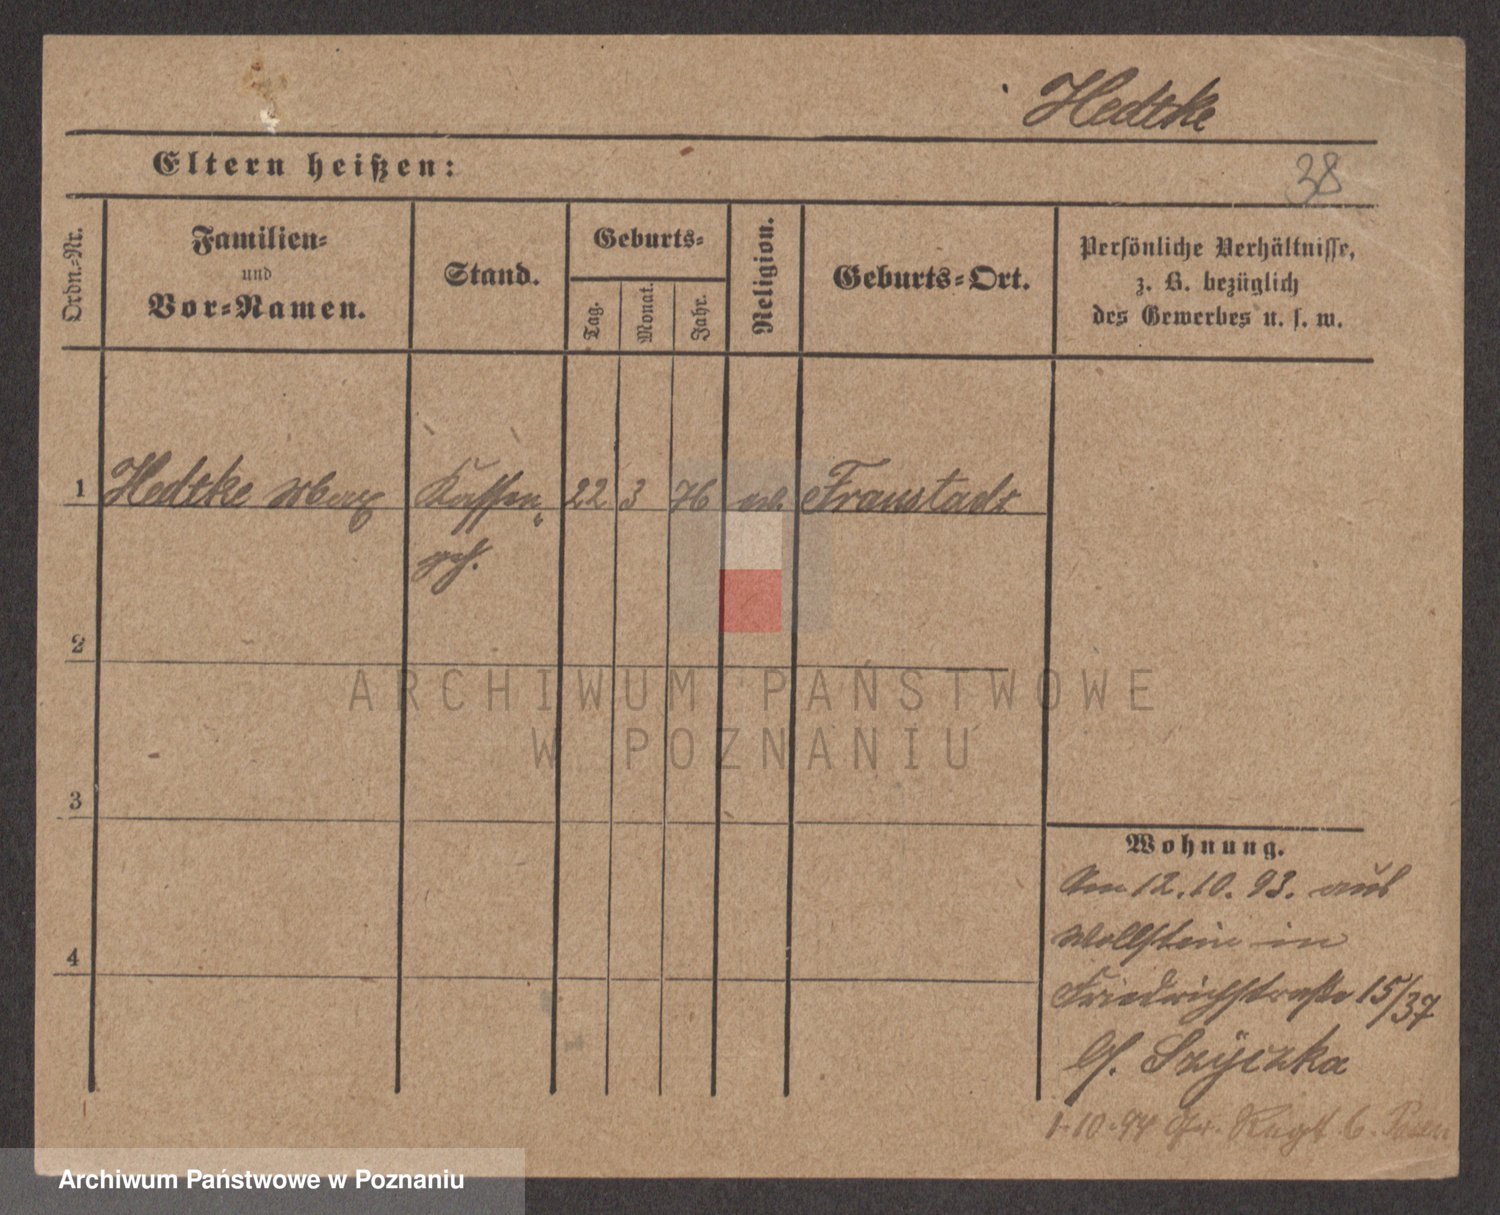 Hedtke
Eltern heißen:
38
Ordn.-Nr.
Familien-
und
Vor-Namen.
Stand.
Geburts-
Tag.
Monat.
Jahr.
Religion.
Geburts-Ort.
Persönliche Verhältnisse,
z. B. bezüglich
des Gewerbes u. s. w.
1 Hedtke Max Kassen- 22 3 76 ev. Fraustadt
geh.
2
ARCHIWUM PAŃSTWOWE
W POZNANIU
3
Wohnung.
Am 12.10.93. aus
Wollstein in
4
Friedrichstraße 15/37
b/. Szyczka
1.10.94 Gr. Regt. 6. Posen
Archiwum Państwowe w Poznaniu